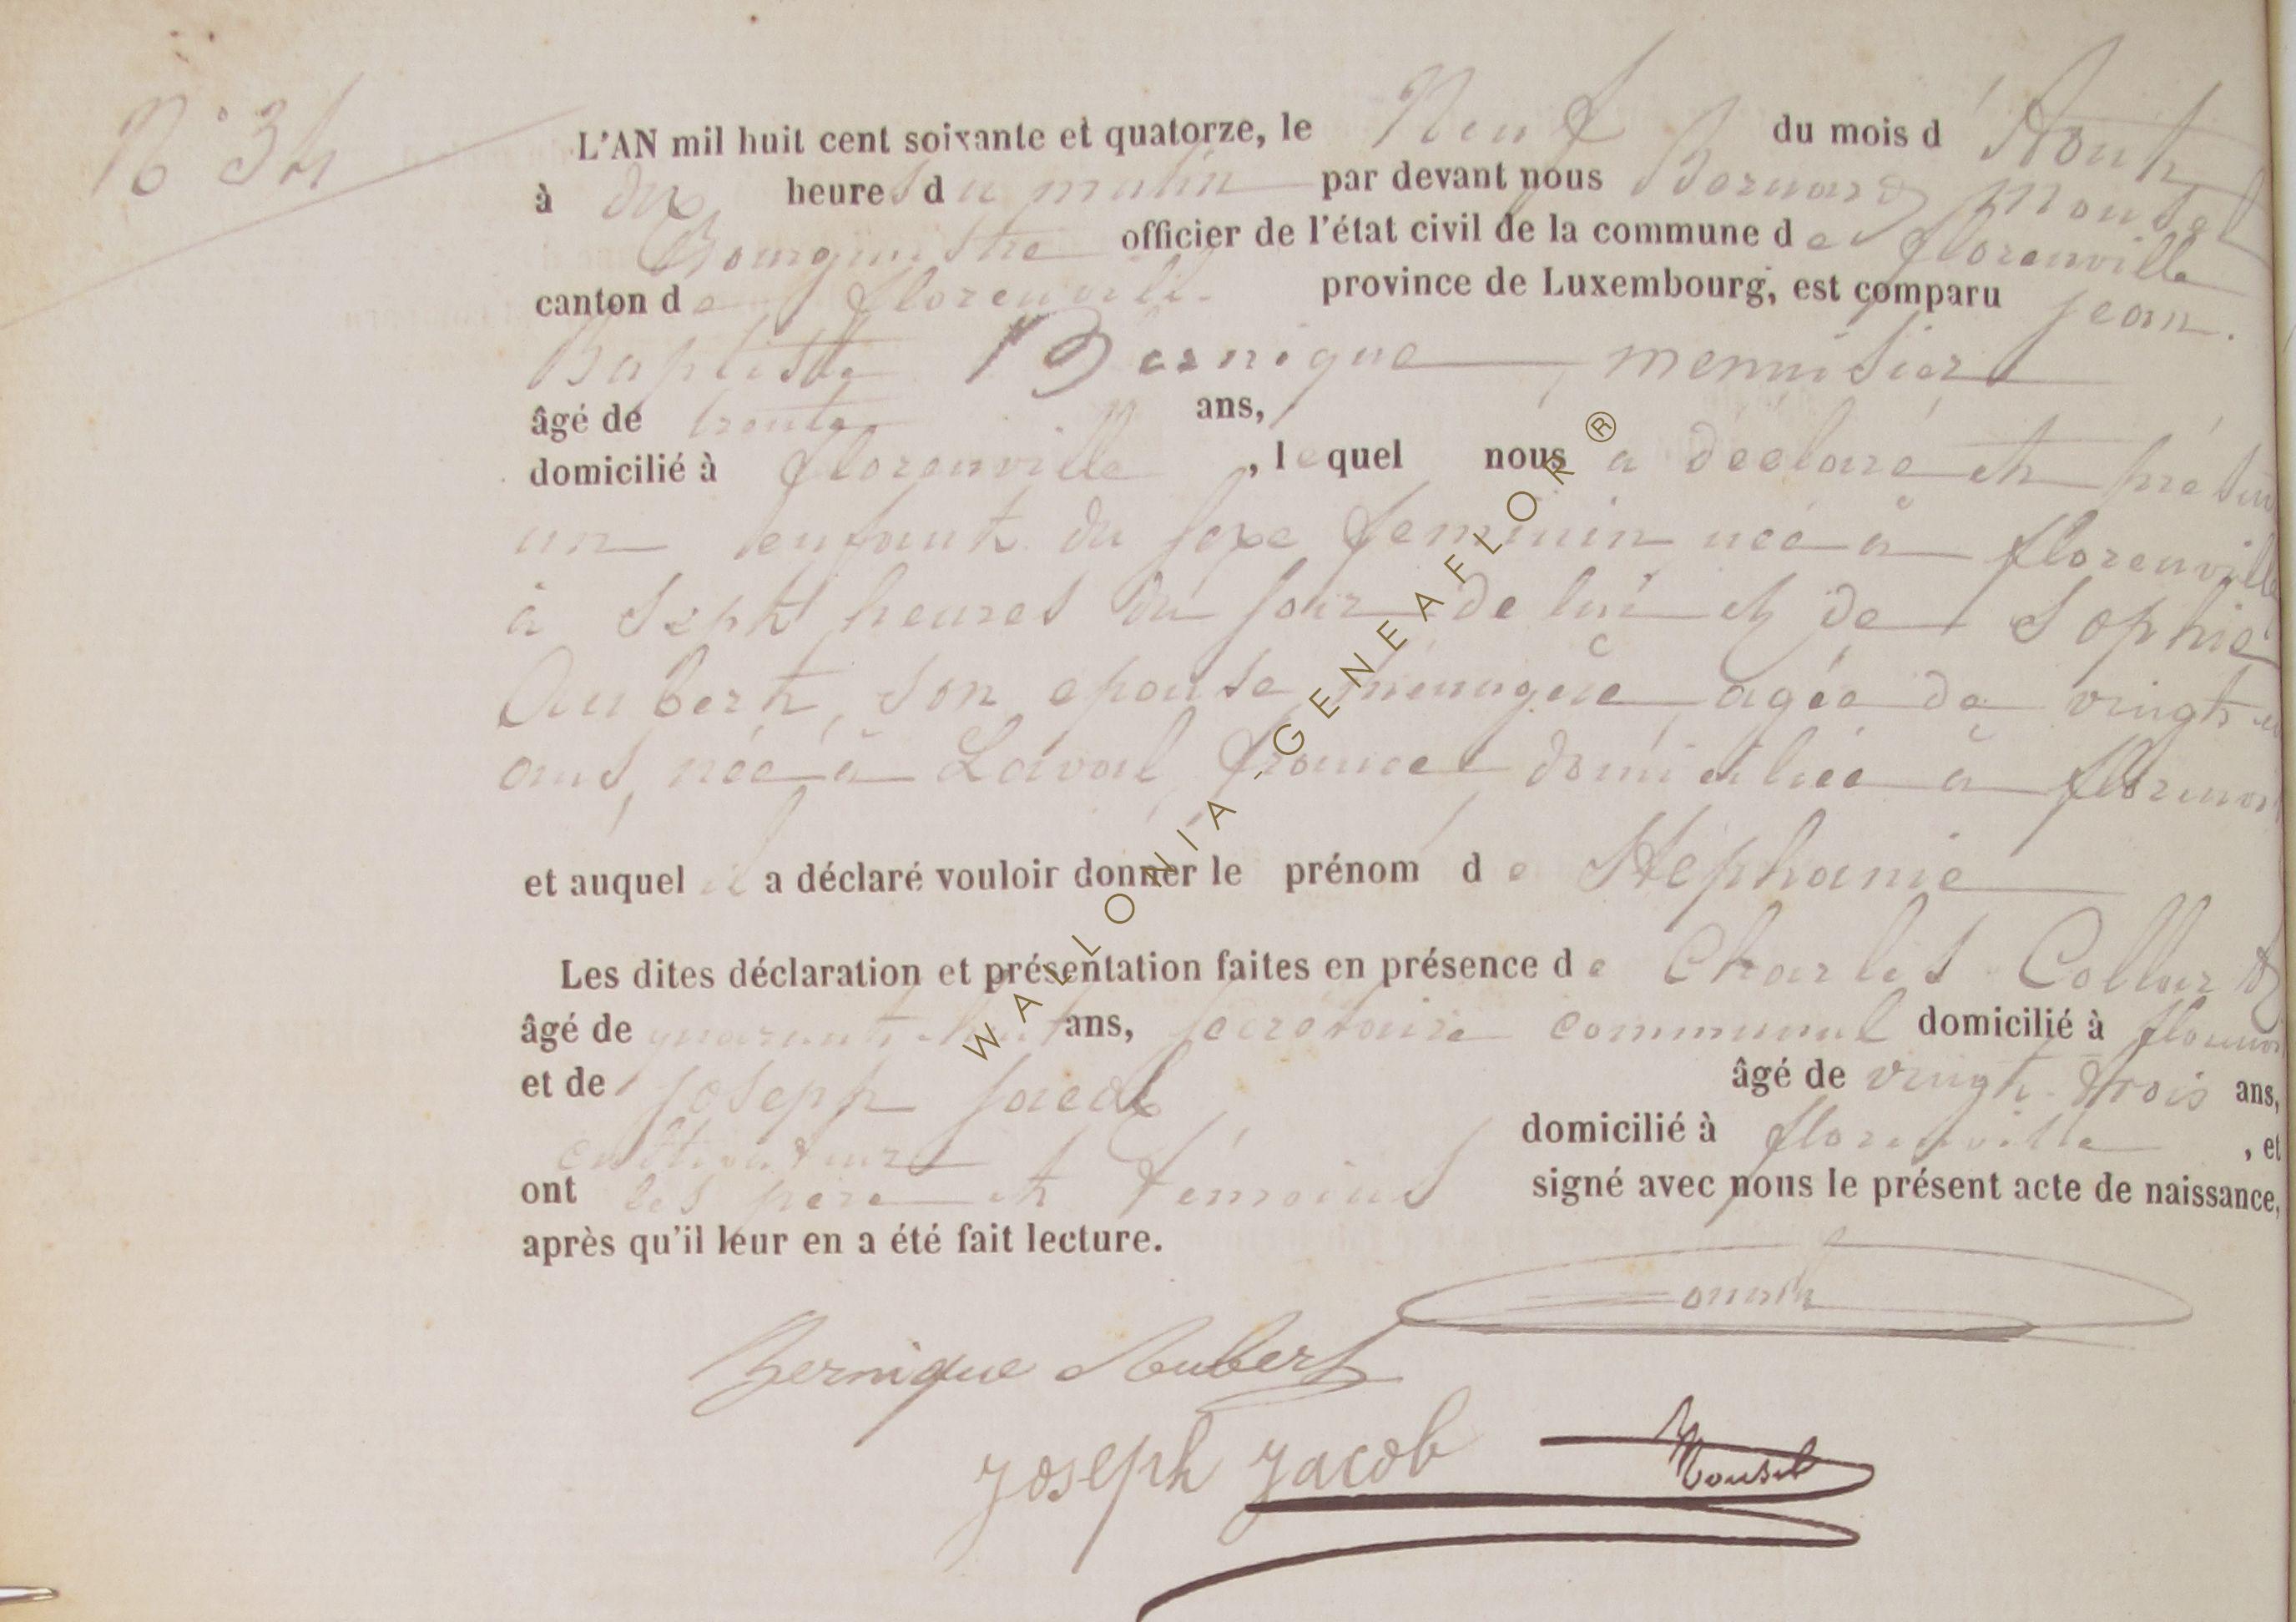 N° 34
L'AN mil huit cent soixante et quatorze, le Neuf du mois d'Aout
à dix heures du matin par devant nous Bernard Mousel
Bourgmestre officier de l'état civil de la commune de florenville
canton de florenville province de Luxembourg, est comparu jean
Baptiste Bernique, menuisier
âgé de trente ans,
domicilié à florenville, lequel nous a déclaré et présen
un enfant du sexe feminin née à florenville
à sept heures du jour de lui et de Sophie
Aubert, son epouse, ménagère agée de vingt
ans, née à Laval france domiciliée à florenv
et auquel il a déclaré vouloir donner le prénom de Stephanie
Les dites déclaration et présentation faites en présence de Charles Collard
âgé de quarante huit ans, secrétaire communal domicilié à florenv
et de joseph jacob, âgé de vingt trois ans,
cultivateur domicilié à florenville, et
ont les père et témoins signé avec nous le présent acte de naissance,
après qu'il leur en a été fait lecture.
Bernique Aubert
Joseph Jacob Mousel
WALLONIA-GENEAFLOR®